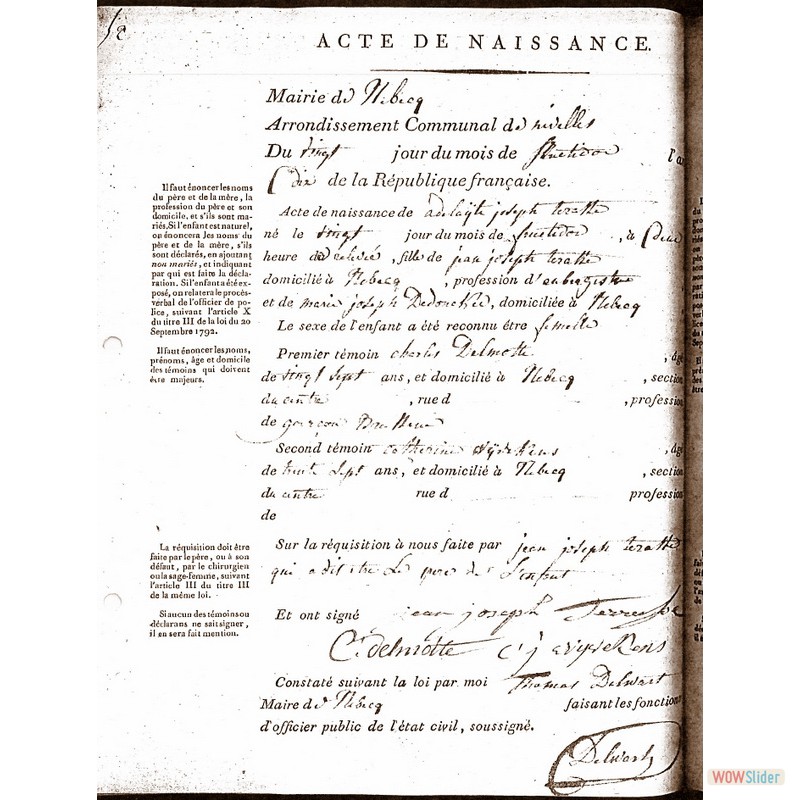 ACTE DE NAISSANCE.
Mairie de Rebecq
Arrondissement Communal de nivelles
Du vingt jour du mois de fructidor l'an
dix de la République française.
Acte de naissance de adelayte joseph
né le vingt jour du mois de fructidor , à
heure de , fille de jean joseph
domicilié à Rebecq , profession d'aubergiste
et de marie joseph Dedoncker, domiciliée à Rebecq
Le sexe de l'enfant a été reconnu être femelle
Premier témoin charles Delmotte , âgé
de vingt sept ans, et domicilié à Rebecq , section
du centre , rue d , profession
de garçon
Second témoin catherine , âgé
de trente sept ans, et domicilié à Rebecq , section
du centre rue d profession
de
Sur la réquisition à nous faite par jean joseph
qui a dit être Le pere de L'enfant
Et ont signé jean joseph
C. delmotte C j
Constaté suivant la loi par moi Thomas Delwart
Maire de Rebecq faisant les fonctions
d'officier public de l'état civil, soussigné.
Delwart
Il faut énoncer les noms
du père et de la mère, la
profession du père et son
domicile, et s'ils sont ma-
riés. Si l'enfant est naturel,
on énoncera les noms du
père et de la mère, s'ils
sont déclarés, en ajoutant
non mariés, et indiquant
par qui est faite la décla-
ration. Si l'enfant a été ex-
posé, on relatera le procès-
verbal de l'officier de po-
lice, suivant l'article X
du titre III de la loi du 20
Septembre 1792.
Il faut énoncer les noms,
prénoms, âge et domicile
des témoins qui doivent
être majeurs.
La réquisition doit être
faite par le père, ou à son
défaut, par le chirurgien
ou la sage-femme, suivant
l'article III du titre III
de la même loi.
Si aucun des témoins ou
déclarans ne sait signer,
il en sera fait mention.
WOWSlider